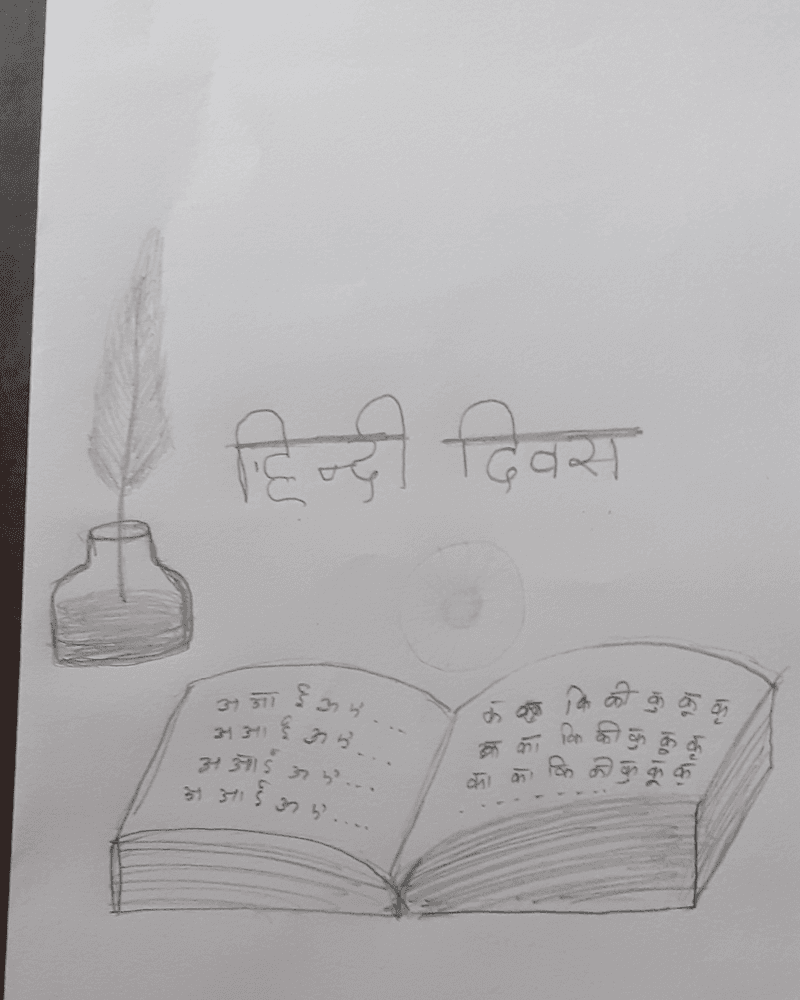 हिन्दी दिवस
अ आ ई अ ए...
अ आ ई अ ए...
अ आ ई अ ए...
अ आ ई अ ए....
क कि की कु कू कृ
क का कि की कु कू कृ
का का कि की कु कू कृ